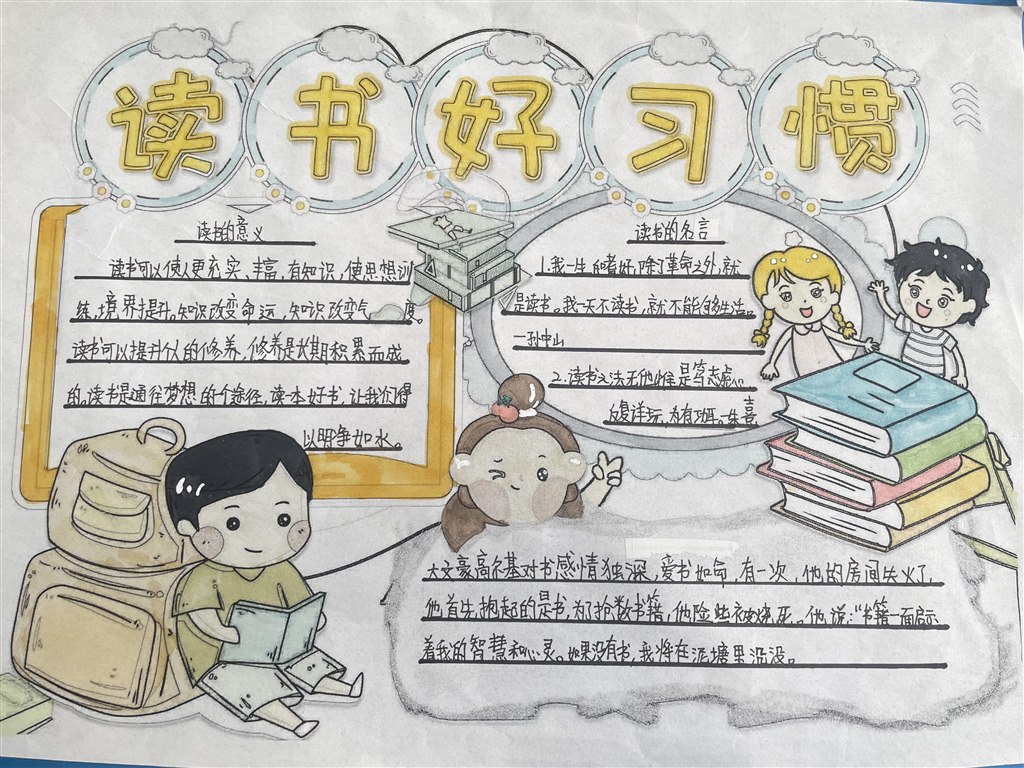 读书好习惯
读书的意义
读书可以使人更充实、丰富,有知识,使思想训
练,境界提升,知识改变命运,知识改变气 度。
读书可以提升个人的修养,修养是长期积累而成
的。读书是通往梦想的个途径,读一本好书,让我们得
以明净如水。
读书的名言
1.我一生的嗜好,除了革命之外,就
是读书。我一天不读书,就不能够生活。
—孙中山
2.读书之法无他,惟是笃志虚心
反复详玩,为有功耳。—朱熹
大文豪高尔基对书感情独深,爱书如命,有一次,他的房间失火了,
他首先抱起的是书,为了抢救书籍,他险些被烧死。他说:“书籍一面启示
着我的智慧和心灵。如果没有书,我将在泥塘里沉没。